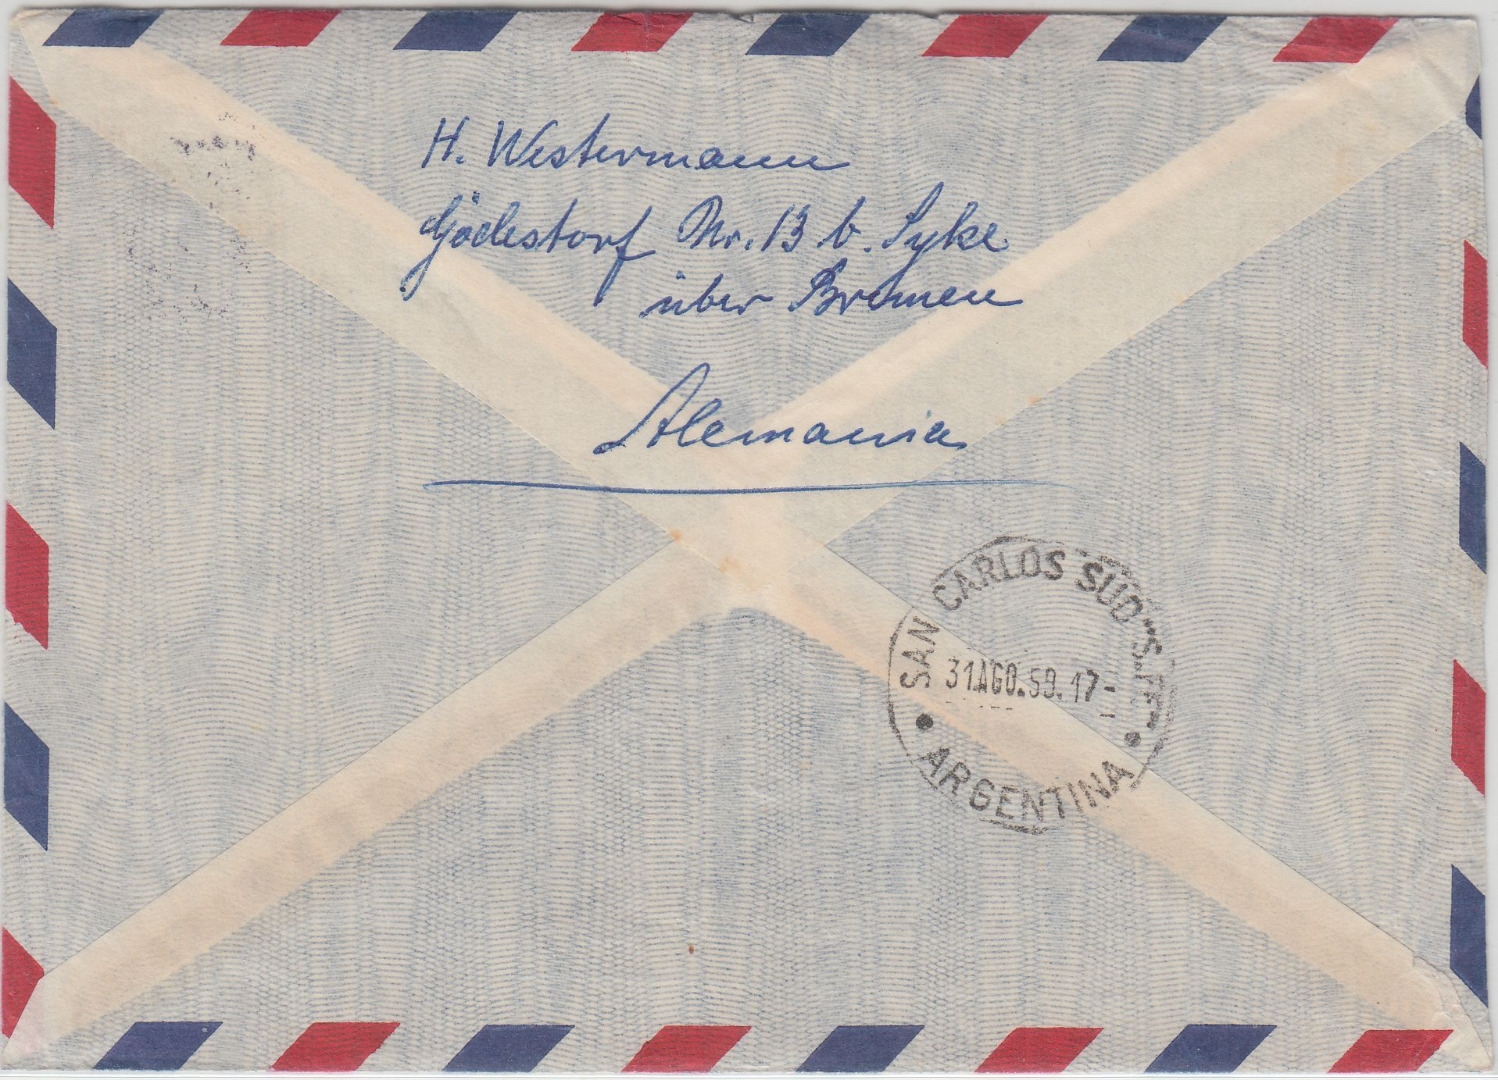 H. Westermann
Gödestorf Nr. 13 b. Syke
über Bremen
Alemania
SAN CARLOS SUD "S.FE"
31 AGO. 59. 17-
ARGENTINA